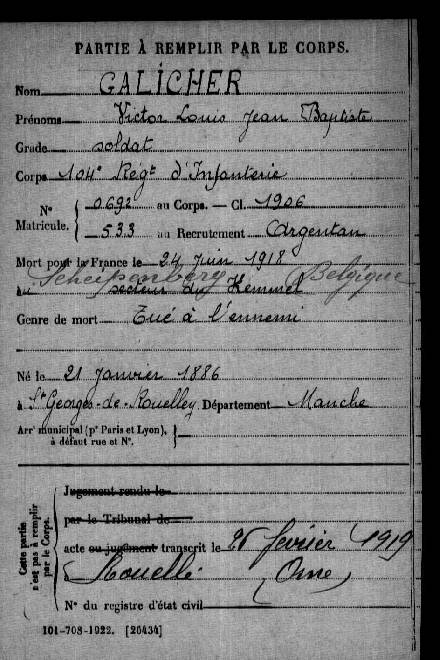 PARTIE À REMPLIR PAR LE CORPS.
Nom GALICHER
Prénoms Victor Louis Jean Baptiste
Grade soldat
Corps 104e Régt d'Infanterie
N° Matricule. 0692 au Corps. — Cl. 1906
533 au Recrutement Argentan
Mort pour la France le 24 Juin 1918
Scherpenberg Belgique
au secteur du Kemmel
Genre de mort Tué à l'ennemi
Né le 21 Janvier 1886
à St Georges-de-Rouelley Département Manche
Arrt municipal (pr Paris et Lyon), à défaut rue et N°.
Cette partie n'est pas à remplir par le Corps.
Jugement rendu le
par le Tribunal de
acte ou jugement transcrit le 26 février 1919
à Rouellé (Orne)
N° du registre d'état civil
101-708-1922. [26434]